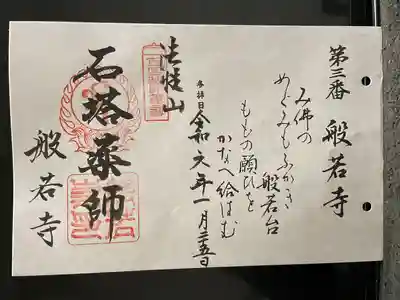 第三番 般若寺
み佛の
めぐみもふかき
般若台
ももの願ひを
かなへ給はむ
参拝日 令和元年一月二五日
法性山
石塔薬師
般若寺